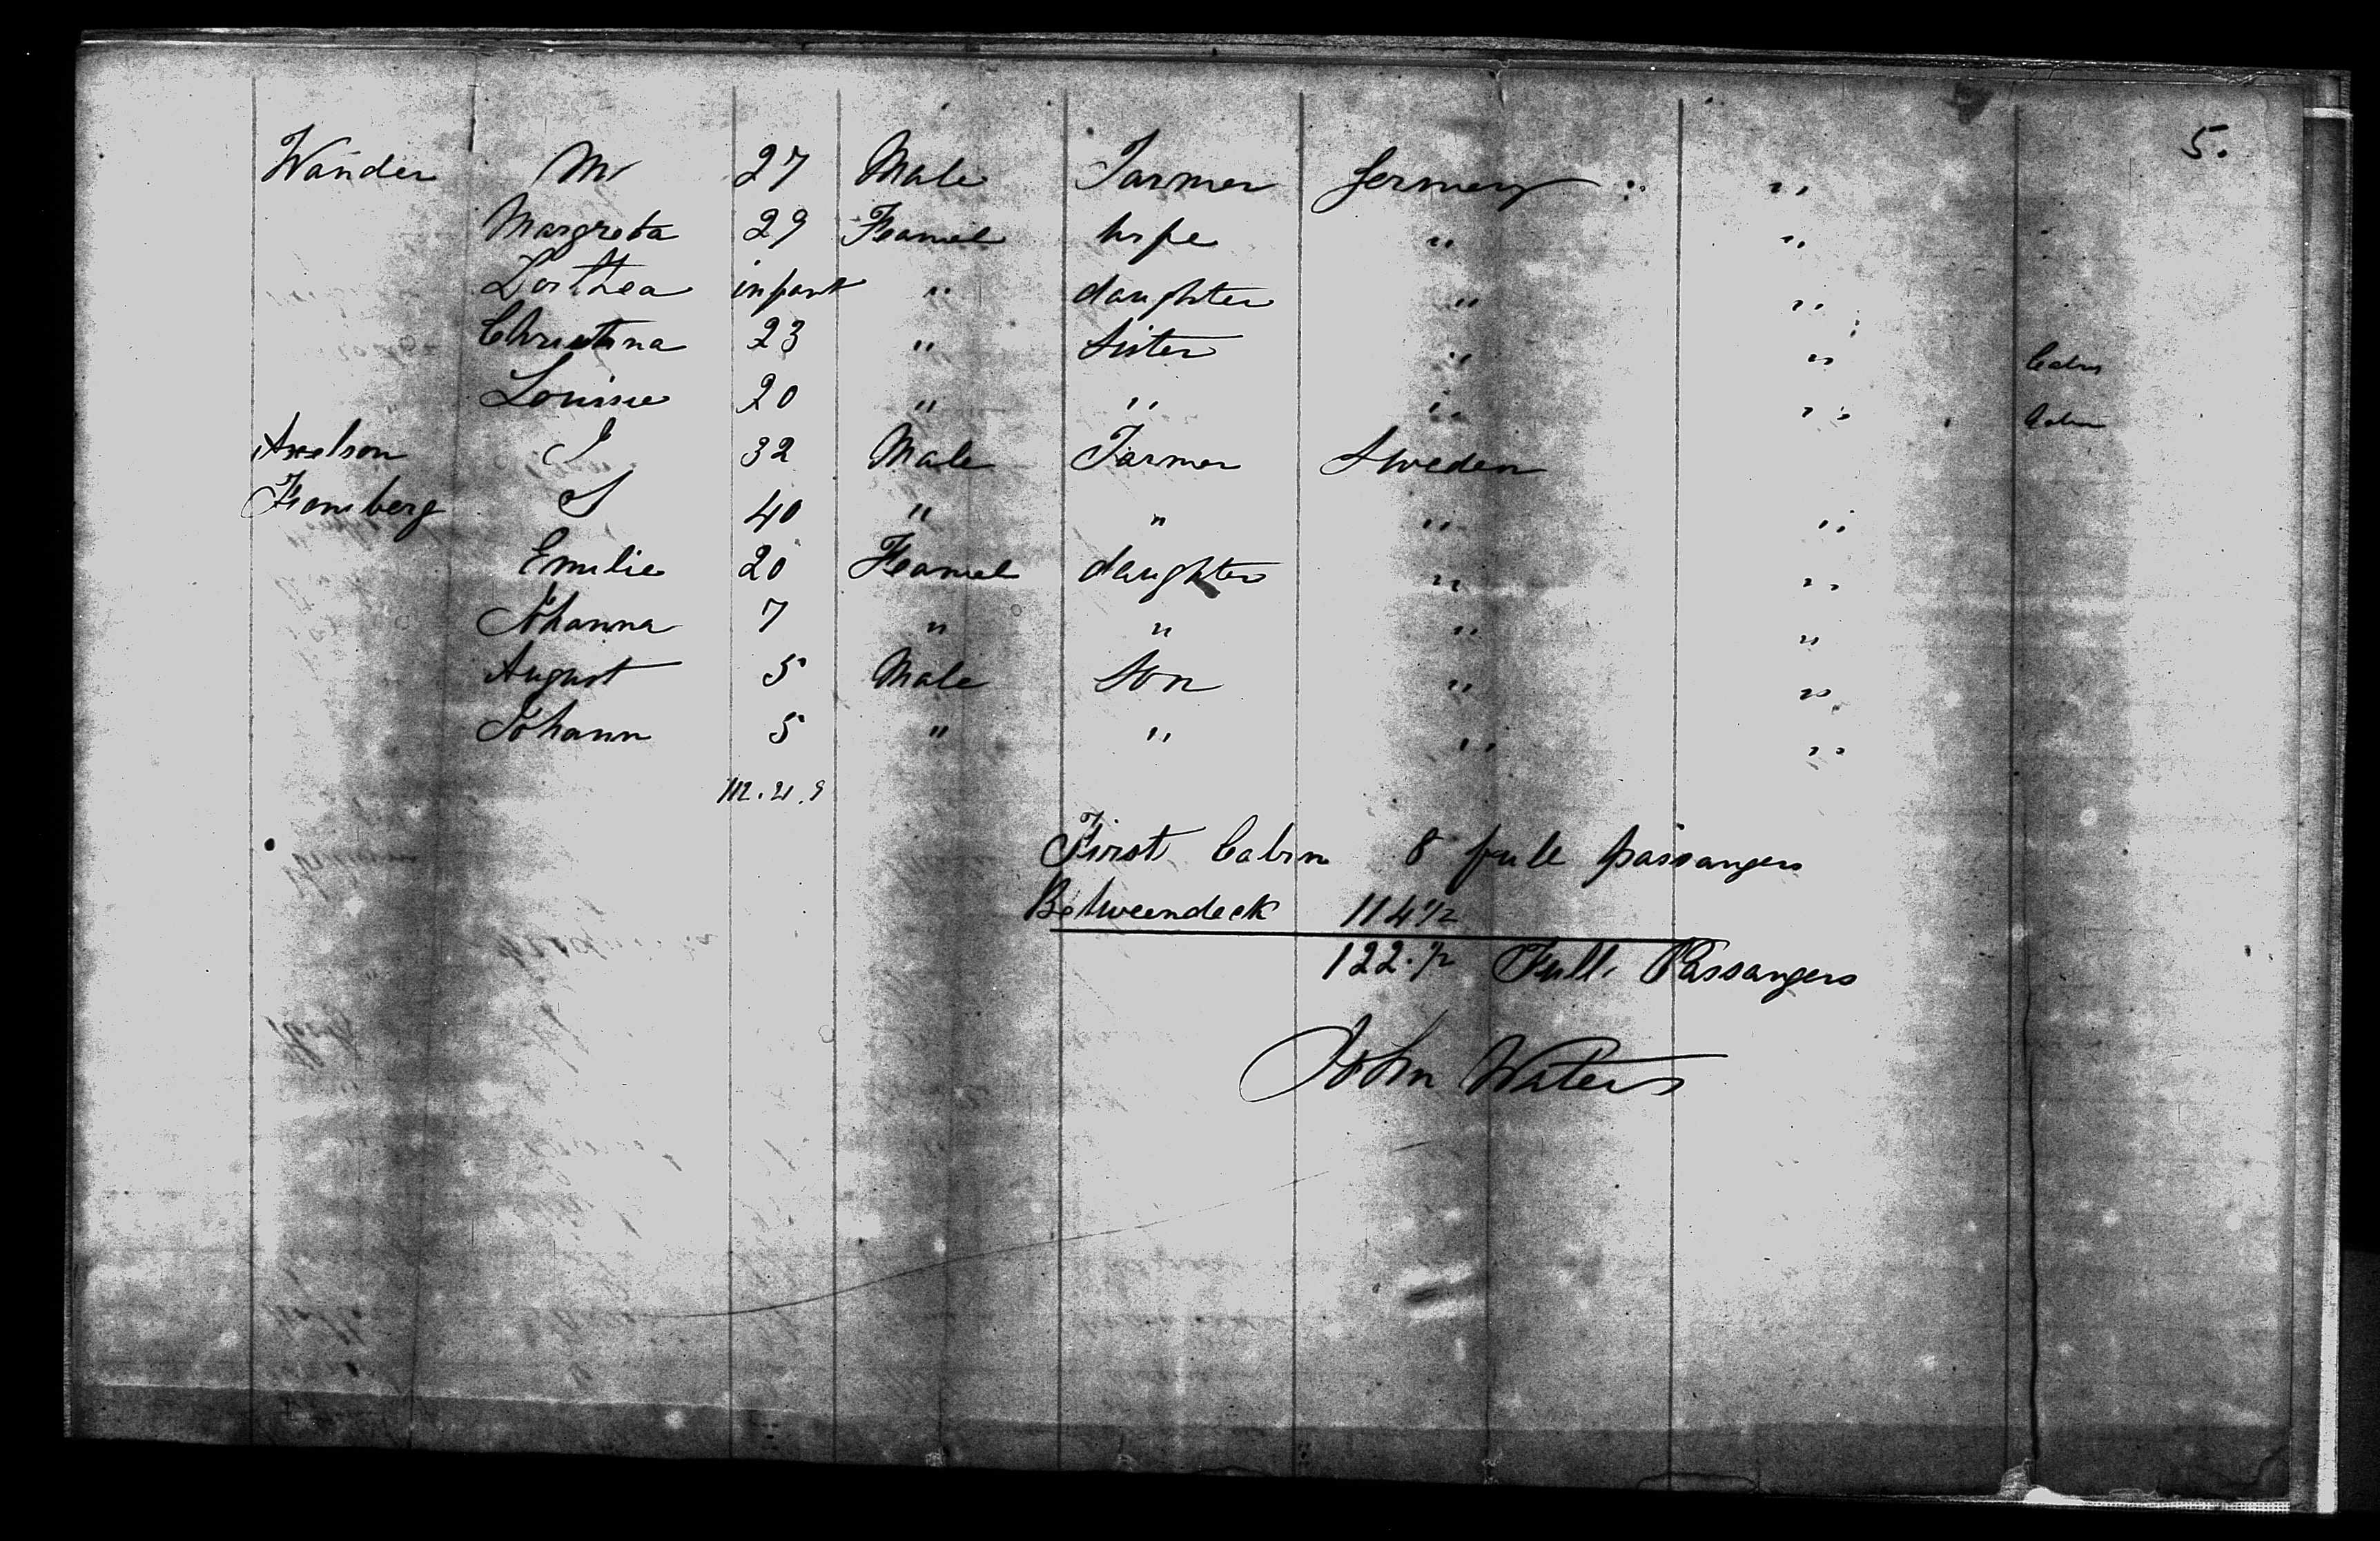 5.
Wander M 27 Male Farmer Germany " "
Margreta 29 Feamel wife " "
Dorthea infant " daughter " "
Christina 23 " Sister " " Cabin
Louise 20 " " " " Cabin
Axelson J 32 Male Farmer Sweden
Framberg S 40 " " " "
Emilie 20 Feamel daughter " "
Johanna 7 " " " "
August 5 Male Son " "
Johann 5 " " " "
112.21.9
First Cabin 8 full passangers
Betweendeck 114 1/2
122. 1/2 Full Passangers
John Waters